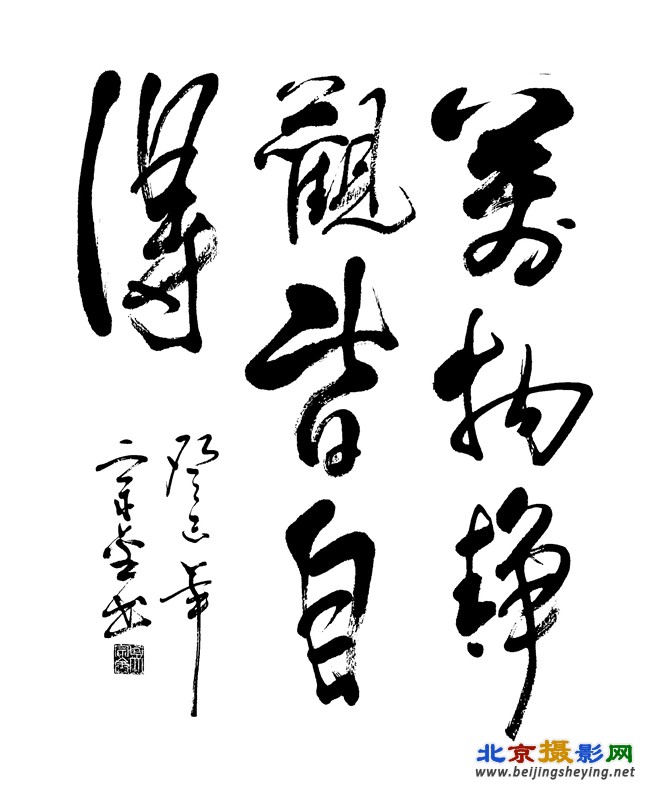 萬物静
觀皆自
得
癸巳年
北京摄影网
www.beijingsheying.net